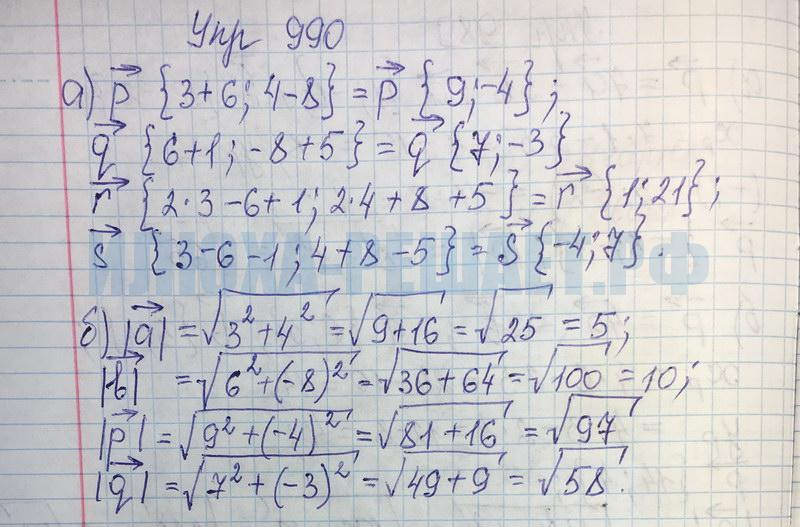 Упр 990
а) p⃗ {3+6; 4-8} = p⃗ {9; -4};
q⃗ {6+1; -8+5} = q⃗ {7; -3}
r⃗ {2·3-6+1; 2·4+8+5} = r⃗ {1; 21};
s⃗ {3-6-1; 4+8-5} = s⃗ {-4; 7}.
ИЛЮХА-РЕШАЕТ.РФ
б) |a⃗| = √(3²+4²) = √(9+16) = √25 = 5;
|b⃗| = √(6²+(-8)²) = √(36+64) = √100 = 10;
|p⃗| = √(9²+(-4)²) = √(81+16) = √97
|q⃗| = √(7²+(-3)²) = √(49+9) = √58.